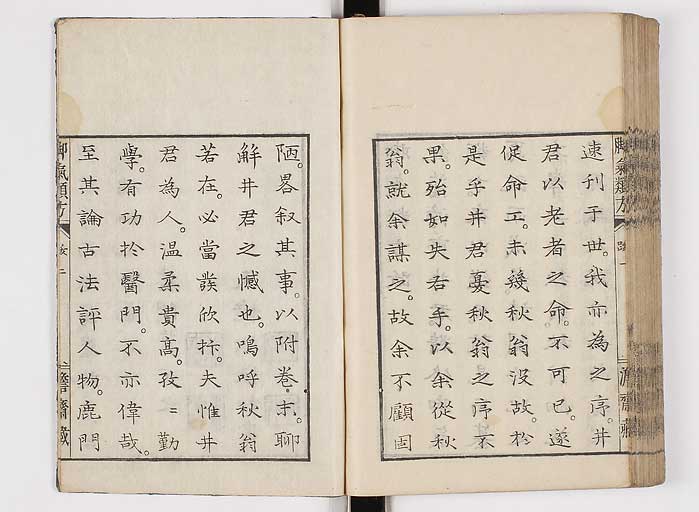 速刊于世。我亦為之序。井
君以老者之命。不可已。遂
促命工。未幾秋翁沒故。於
是乎井君憂秋翁之序不
果。殆如失右手。以余從秋
翁。就余謀之。故余不顧固
陋。畧叙其事。以附卷末。聊
解井君之憾也。嗚呼秋翁
若在。必當發欣抃。夫惟井
君為人。温柔貴髙。孜〻勤
學。有功於醫門。不亦偉哉。
至其論古法評人物。鹿門
脚氣類方
跋 一
脚氣類方
跋 二
澹齋藏